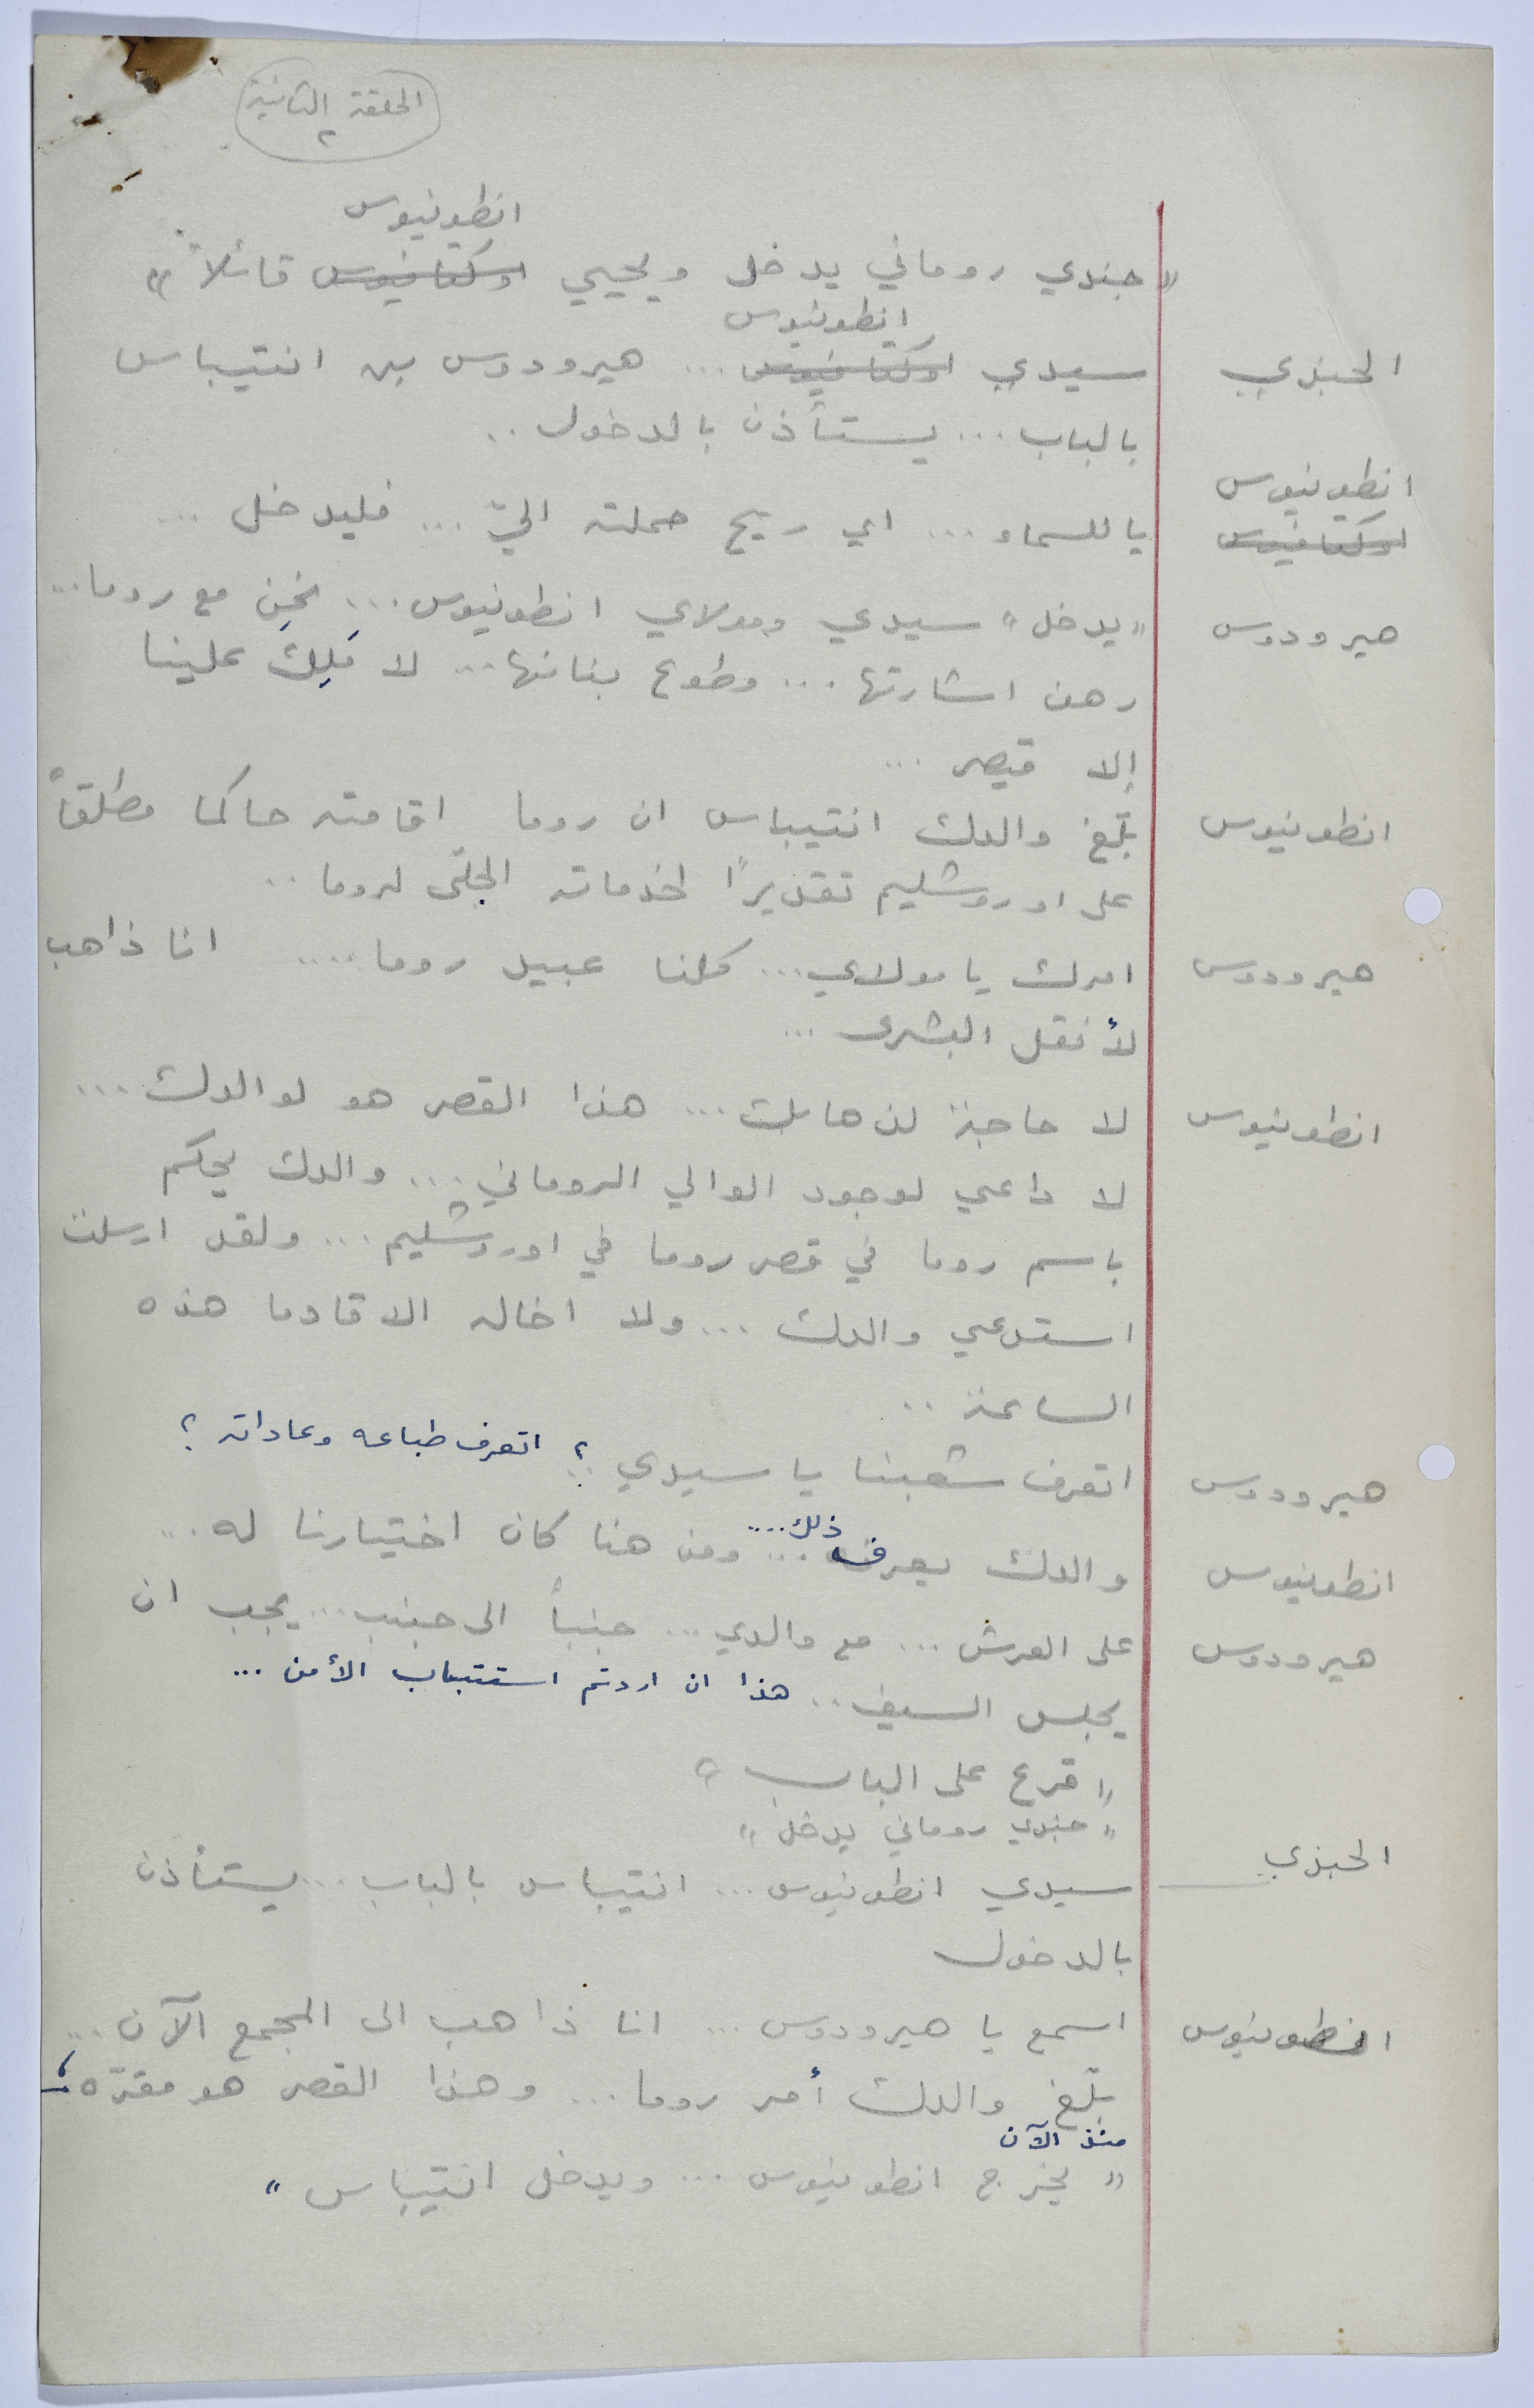 الحلقة الثانية
٢
انطونيوس
« جندي روماني يدخل ويحيي اوكتافيوس قائلاً »
انطونيوس
الجندي سيدي اوكتافيوس ... هيرودوس بن انتيباس
بالباب ... يستأذن بالدخول ..
انطونيوس
اوكتافيوس يا للسماء ... اي ريح حملته اليّ ... فليدخل ...
هيرودوس « يدخل » سيدي ومولاي انطونيوس ... نحن مع روما ...
رهن اشارتها ... وطوع بنانها ... لا مَلِكَ علينا
إلا قيصر ...
انطونيوس بلّغ والدك انتيباس ان روما اقامته حاكما مطلقاً
على اوروشليم تقديرًا لخدماته الجلّى لروما ..
هيرودوس امرك يا مولاي ... كلنا عبيد روما .... انا ذاهب
لأنقل البشرى ...
انطونيوس لا حاجة لذهابك ... هذا القصر هو لوالدك ...
لا داعي لوجود الوالي الروماني ... والدك يحكم
باسم روما في قصر روما في اوروشليم ... ولقد ارسلت
استدعي والدك ... ولا اخاله الا قادما هذه
الساعة ..
هيرودوس اتعرف شعبنا يا سيدي ؟ اتعرف طباعه وعاداته ؟
انطونيوس والدك يعرف ذلك ... ومن هنا كان اختيارنا له ...
هيرودوس على العرش ... مع والدي ... جنباً الى جنب ... يجب ان
يجلس السيف .. هذا ان اردتم استتباب الأمن ...
« قرع على الباب »
« جندي روماني يدخل »
الجندي سيدي انطونيوس ... انتيباس بالباب ... يستأذن
بالدخول
انطونيوس اسمع يا هيرودوس ... انا ذاهب الى المجمع الآن ...
بلّغ والدك أمر روما ... وهذا القصر هو مقرّه
منذ الآن
« يخرج انطونيوس ... ويدخل انتيباس »